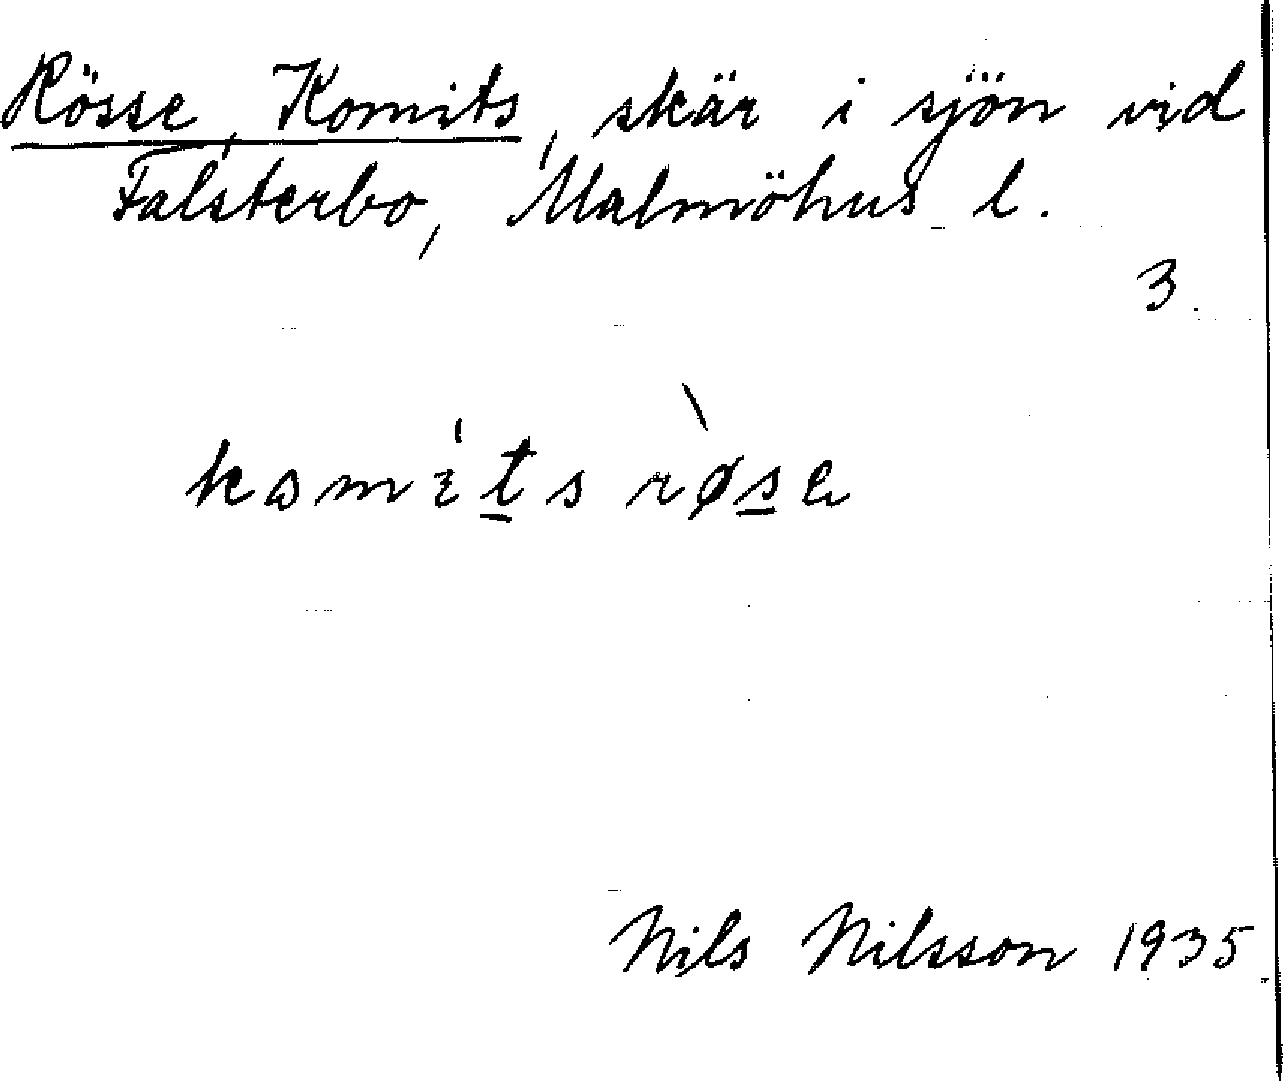 Rösse, Komits, skär i sjön vid
Falsterbo, Malmöhus l.
3.
Nils Nilsson 1935